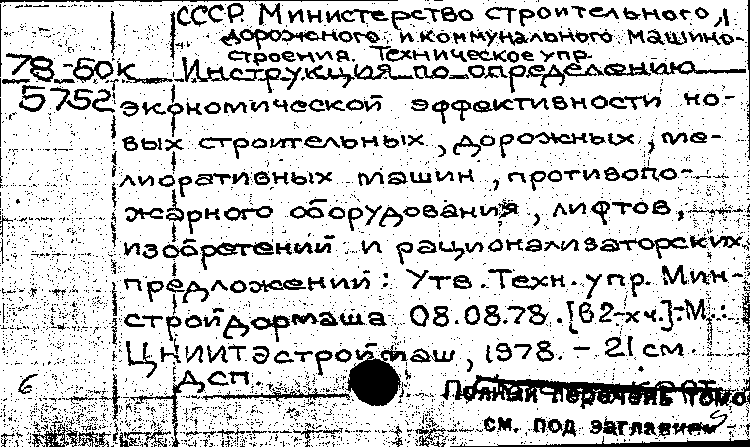 СССР. Министерство строительного,
дорожного и коммунального машино-
строения. Техническое упр.
78-50к Инструкция по определению
5752 экономической эффективности но-
вых строительных, дорожных, ме-
лиоративных машин, противопо-
жарного оборудования, лифтов,
изобретений и рационализаторских
предложений: Утв. Техн. упр. Мин-
стройдормаша 08.08.78. [В 2-х ч.]-М.:
ЦНИИТЭстроймаш, 1978. - 21 см.
6 ДСП.
Полный перечень томо
см. под заглавием